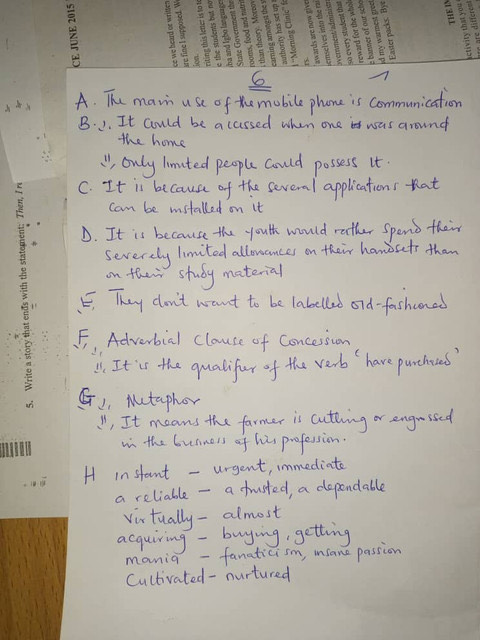 CE JUNE 2015
5. Write a story that ends with the statement: Then, I r
6
A. The main use of the mobile phone is communication
B. i, It could be acessed when one is was around
the home
ii, Only limited people could possess it.
C. It is because of the several applications that
can be installed on it
D. It is because the youth would rather spend their
severely limited allowances on their handsets than
on their study material
E, They don't want to be labelled old-fashioned
F, i, Adverbial Clause of Concession
ii, It is the qualifier of the verb 'have purchased'
G i, Metaphor
ii, It means the farmer is cutting or engrossed
in the business of his profession.
H instant – urgent, immediate
a reliable – a trusted, a dependable
virtually – almost
acquiring – buying, getting
mania – fanaticism, insane passion
Cultivated – nurtured